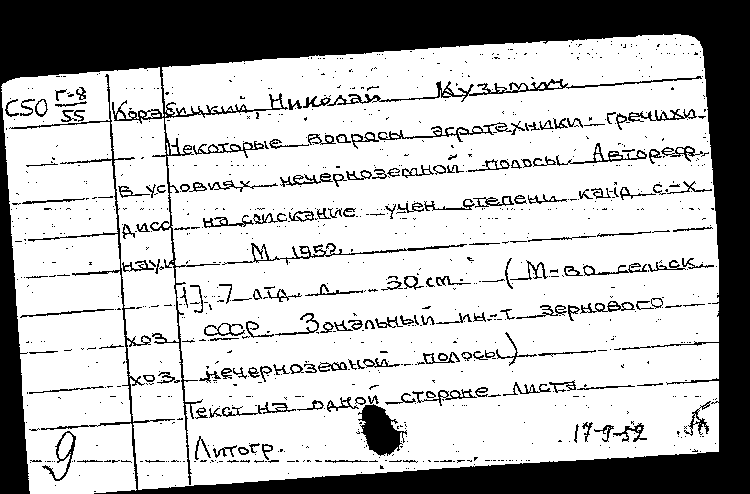 С50 Г-8/55 Корабицкий, Николай Кузьмич
Некоторые вопросы агротехники гречихи
в условиях нечерноземной полосы. Автореф.
дисс. на соискание учен. степени канд. с.-х.
наук. М., 1952.
[1], 7 отд. л. 30 см. (М-во сельск.
хоз. СССР. Зональный ин-т зернового
хоз. нечерноземной полосы)
Текст на одной стороне листа.
Литогр.
17-9-52
9